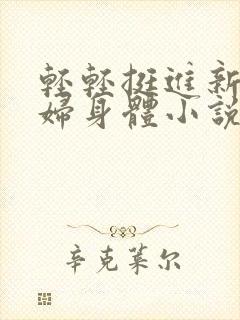 輕輕挺進新
婦身體小說
辛克萊尔